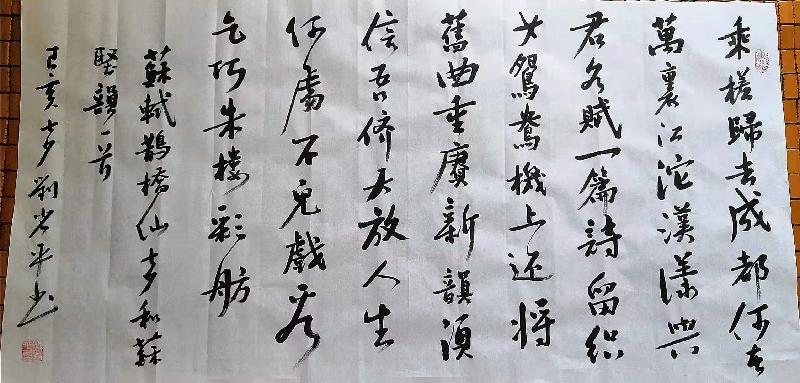 乘槎歸去成都何在
萬裏江沱漢漾與
君各賦一篇詩留織
女鴛鴦機上还將
舊曲重賡新韻須
信吾儕天放人生
何處不兒戲看
乞巧朱樓彩舫
蘇軾鵲橋仙七夕和蘇
堅韻一首
亥七夕劉平书